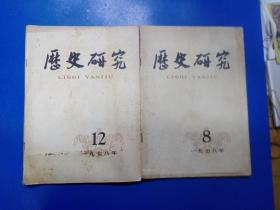 歷史研究
LISHI YANJIU
12
一九七八年
歷史研究
LISHI YANJIU
8
一九七八年